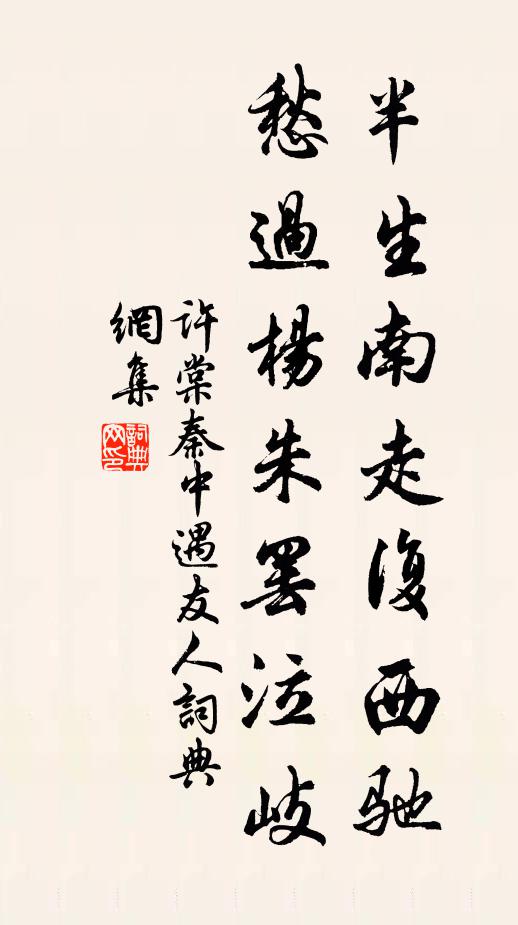 半生南走復西馳
愁過楊朱罢泣岐
许棠秦中遇友人詞典
網集
詞典
网印